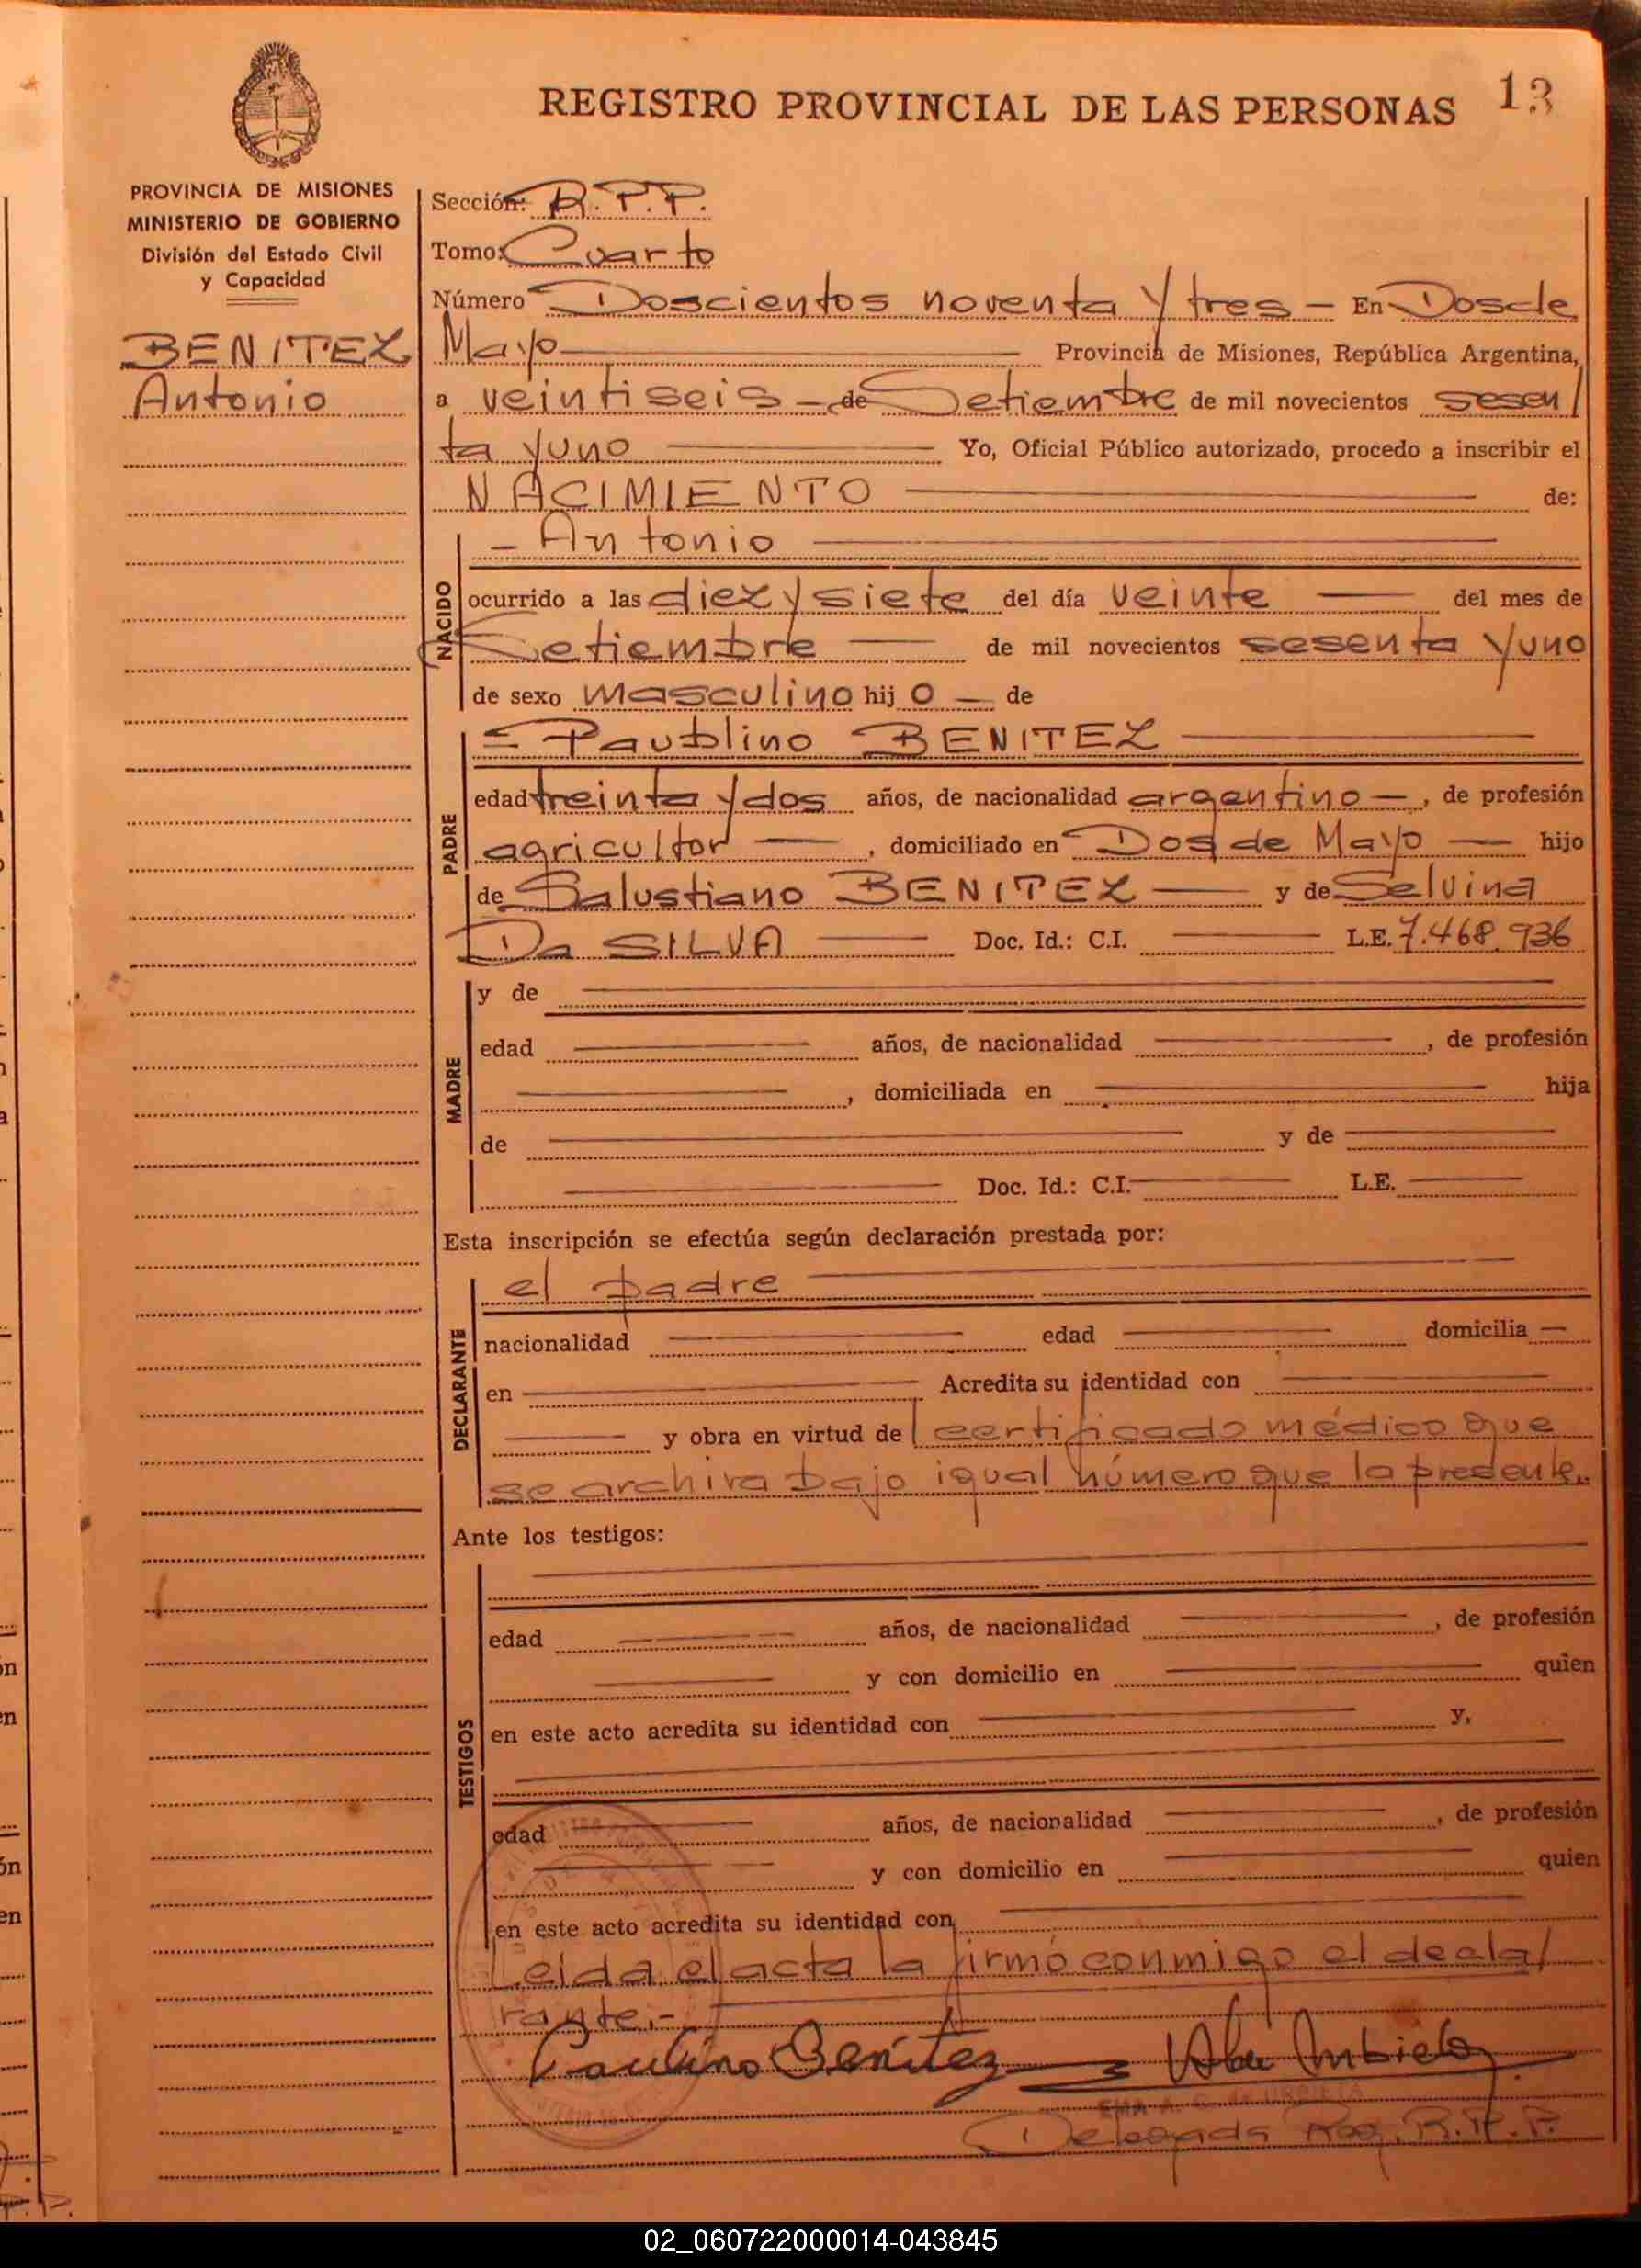 REGISTRO PROVINCIAL DE LAS PERSONAS 13
PROVINCIA DE MISIONES
MINISTERIO DE GOBIERNO
División del Estado Civil
y Capacidad
BENITEZ
Antonio
Sección: R.P.P.
Tomo: Cuarto
Número Doscientos noventa y tres — En Dos de
Mayo — Provincia de Misiones, República Argentina,
a veintiseis — de Setiembre de mil novecientos sesen/
ta y uno — Yo, Oficial Público autorizado, procedo a inscribir el
NACIMIENTO — de:
NACIDO
— Antonio —
ocurrido a las diez y siete del día veinte — del mes de
Setiembre — de mil novecientos sesenta y uno
de sexo masculino hij o — de
PADRE
= Paublino BENITEZ —
edad treinta y dos años, de nacionalidad argentino —, de profesión
agricultor —, domiciliado en Dos de Mayo — hijo
de Salustiano BENITEZ — y de Selvina
Da SILVA — Doc. Id.: C.I. — L.E. 7.468.936
MADRE
y de —
edad — años, de nacionalidad —, de profesión
—, domiciliada en — hija
de — y de —
— Doc. Id.: C.I. — L.E. —
Esta inscripción se efectúa según declaración prestada por:
DECLARANTE
el padre —
nacionalidad — edad — domicilia —
en — Acredita su identidad con —
— y obra en virtud de l certificado médico que
se archiva bajo igual número que la presente.
Ante los testigos:
TESTIGOS
—
edad — años, de nacionalidad —, de profesión
— y con domicilio en — quien
en este acto acredita su identidad con — y,
—
edad — años, de nacionalidad —, de profesión
— y con domicilio en — quien
en este acto acredita su identidad con —
Leida el acta la firmó conmigo el decla/
rante.-
Paulino Benítez
EMA A. C. de URBIETA
Delegada Reg. R.P.P.
02_060722000014-043845